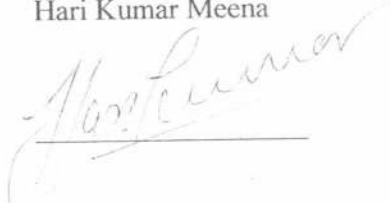 Hari Kumar Meena
Harikumar